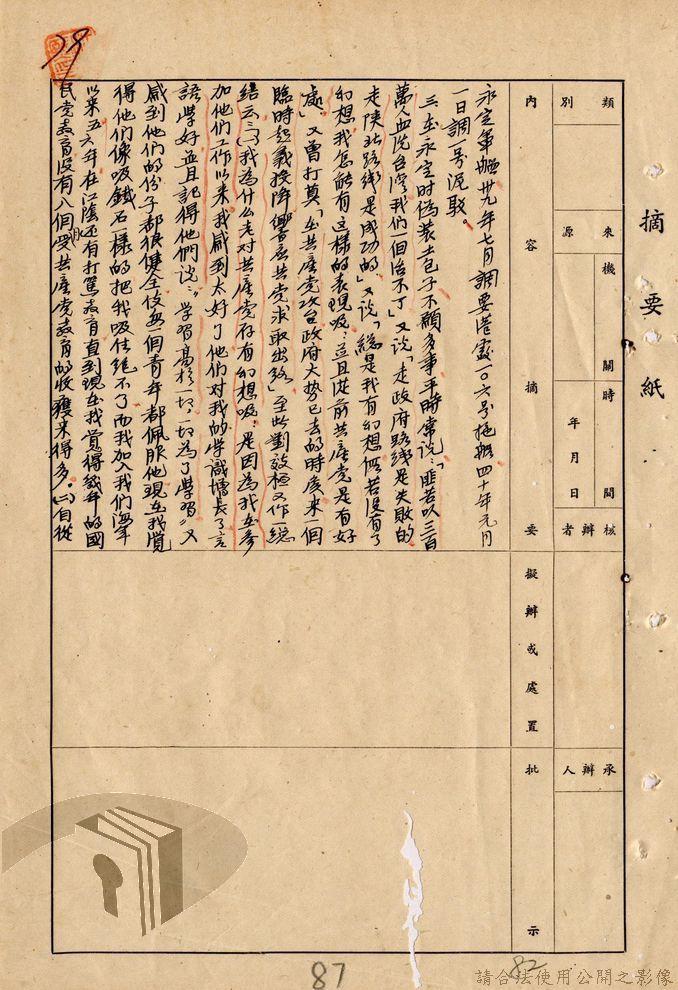 摘要紙
類別
來源
機關
時間
年月日
核辦者
承辦人
內容摘要
擬辦或處置
批示
永定軍艦卅九年七月調要港處一〇六号拖船四十年元月
一日調一号泥駁。
三、在永定时偽装土包子不顧多事平時常說:「匪若以三百
萬人血洗台灣我們但治不了」又說「走政府路綫是失敗的
走陝北路綫是成功的」又說「總是我有幻想假若没有了
幻想我怎能有這樣的表現呢:並且從前共產党是有好
處」又曾打莫「在共產党攻台政府大势已去的时候來一個
臨時起義投降響應共党求取出路」至此劉 又作一總
結云:(一)我為什么老对共產党存有幻想呢:是因為我在参
加他們工作以來我感到太好了他們对我的学識增長了言
語学好並且記得他們說:"学習高於一切,一切為了学習"又
感到他們的份子都很健全使每一個青年都佩服他現在我覺
得他們像吸鐵石一樣的把我吸住絕不了而我加入我們海軍
以來五六年在江陰还有打罵教育直到現在我覺得幾年的國
民党教育没有八個月受共產党教育的收獲來得多。(二)自從
79
87
82
請合法使用公開之影像